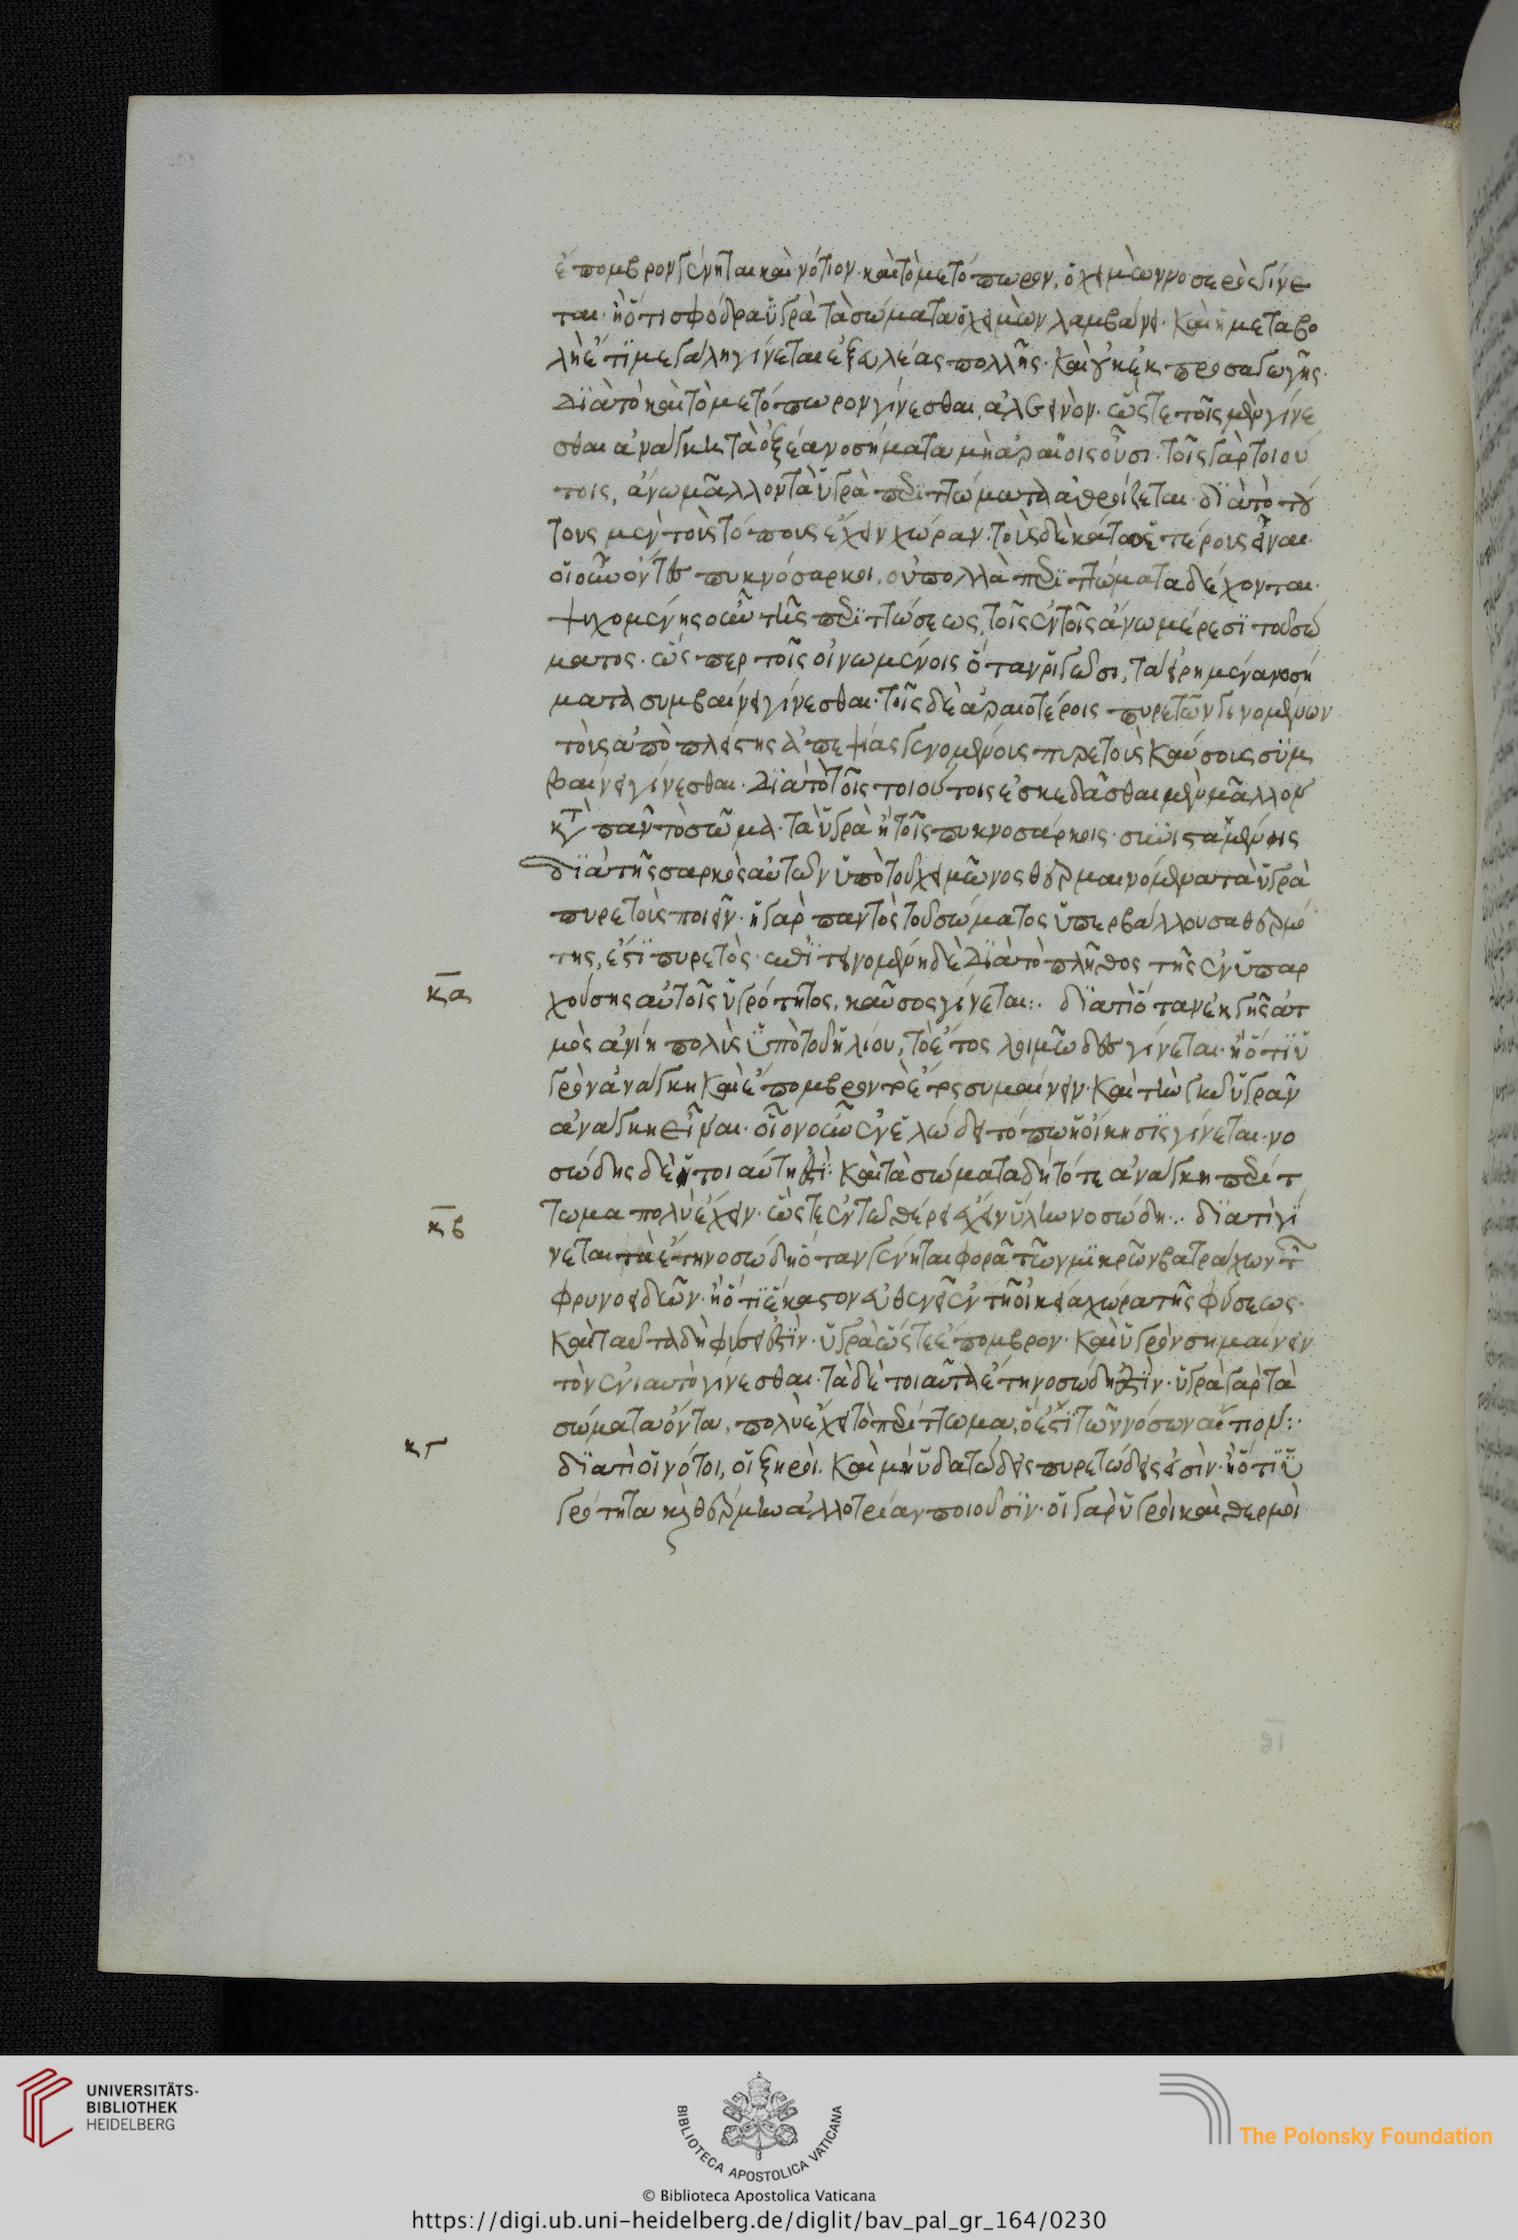 ἐπομβρον γένηται καὶ νότιον. καὶ τὸ μετόπωρον, ὁ χειμὼν νοσερὸς γίνε
ται. ἢ ὅτι σφόδρα ὑγρὰ τὰ σώματα ὁ χειμὼν λαμβάνει. καὶ ἡ μεταβο
λὴ ἔτι μεγάλη γίνεται ἐξ ἀλέας πολλῆς. καὶ οὐκ ἐκ προσαγωγῆς.
διὰ τὸ καὶ τὸ μετόπωρον γίνεσθαι, ἀλεεινόν. ὥστε τοῖς μὲν γίνε
σθαι ἀναγκη τὰ ὀξέα νοσήματα μὴ ἀραιοῖς οὖσι. τοῖς γὰρ τοιού
τοις, ἄνω μᾶλλον τὰ ὑγρὰ περιττώματα ἀθροίζεται. διὰ τὸ τού
τους μὲν τοὺς τόπους ἔχειν χώραν. τοὺς δὲ κάτω ἑτέρους εἶναι.
οἱ οὖν ὄντες πυκνόσαρκοι, οὐ πολλὰ περιττώματα δέχονται.
ψυχομένης οὖν τῆς περιττώσεως, τοῖς ἐν τοῖς ἄνω μέρεσι τοῦ σώ
ματος. ὥσπερ τοῖς οἰνωμένοις ὅταν ῥιγῶσι, τὰ εἰρημένα νοσή
ματα συμβαίνει γίνεσθαι. τοῖς δὲ ἀραιοτέροις πυρετῶν γενομένων
τοὺς ἀπὸ πλείστης ἀπεψίας γενομένοις πυρετοὺς καύσους συμ
βαίνει γίνεσθαι. διὰ τὸ τοῖς τοιούτοις ἐσκεδᾶσθαι μὲν μᾶλλον
κατὰ πᾶν τὸ σῶμα. τὰ ὑγρὰ ἢ τοῖς πυκνοσάρκοις. συνισταμένης
διὰ τῆς σαρκὸς αὐτῶν ὑπὸ τοῦ χειμῶνος θερμαινόμενα τὰ ὑγρὰ
πυρετοὺς ποιεῖν. ἡ γὰρ παντὸς τοῦ σώματος ὑπερβάλλουσα θερμό
της, ἐστὶ πυρετὸς. ἐπιτεινομένη δὲ διὰ τὸ πλῆθος τῆς ἐνυπαρ
κα χούσης αὐτοῖς ὑγρότητος, καῦσος γίνεται:. διατὶ ὅταν ἐκ γῆς ἀτ
μὸς ἀνίῃ πολὺς ὑπὸ τοῦ ἡλίου, τὸ ἔτος λοιμῶδες γίνεται. ἢ ὅτι ὑ
γρὸν ἀνάγκη καὶ ἔπομβρον τὸ ἔτος συμαίνειν. καὶ τὴν γῆν ὑγρὰν
ἀνάγκη εἶναι. οἷον οὖν ἐν ἑλώδει τόπῳ ἡ οἴκησις γίνεται. νο
σώδης δὲ ἡ τοιαύτη ἐστί. καὶ τὰ σώματα δὴ τότε ἀνάγκη περίτ
κβ τωμα πολὺ ἔχειν. ὥστε ἐν τῷ θέρει ἔχειν ὕλην νοσώδη:. διατὶ γί
νεται τὰ ἔτη νοσώδη ὅταν γένηται φορὰ τῶν μικρῶν βατράχων τῶν
φρυνοειδῶν. ἢ ὅτι ἕκαστον εὐθενεῖ ἐν τῇ οἰκείᾳ χώρᾳ τῆς φύσεως.
καὶ ταῦτα δὴ φύσει ἐστὶν. ὑγρὰ ὥστε ἔπομβρον. καὶ ὑγρὸν σημαίνειν
τὸν ἐνιαυτὸ γίνεσθαι. τὰ δὲ τοιαῦτα ἔτη νοσώδη ἐστὶν. ὑγρὰ γὰρ τὰ
σώματα ὄντα, πολὺ ἔχει τὸ περίττωμα, ὅ ἐστι τῶν νόσων αἴτιον:.
κγ διατὶ οἱ νότοι, οἱ ξηροὶ. καὶ μὴ ὑδατώδεις πυρετώδεις εἰσὶν. ἢ ὅτι ὑ
γρότητα καὶ θερμὴν ἀλλοτρίαν ποιοῦσιν. οἱ γὰρ ὑγροὶ καὶ θερμοὶ
ιε
UNIVERSITÄTS-
BIBLIOTHEK
HEIDELBERG
BIBLIOTECA APOSTOLICA VATICANA
The Polonsky Foundation
© Biblioteca Apostolica Vaticana
https://digi.ub.uni-heidelberg.de/diglit/bav_pal_gr_164/0230